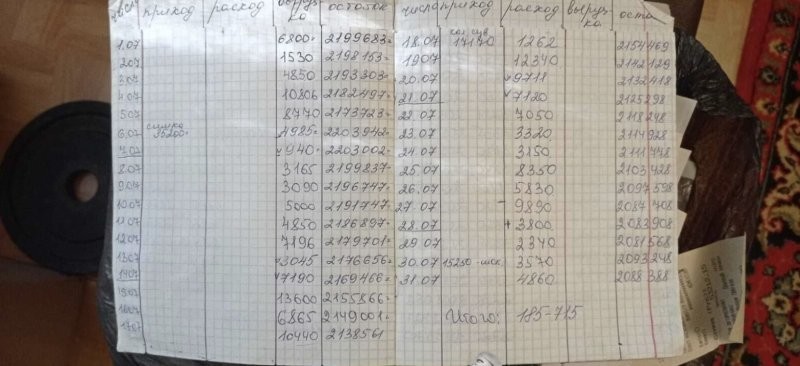 число приход расход выруч
ка остаток
1.07 6800 2199683
2.07 1530 2198153
3.07 4850 2193303
4.07 10806 2182497
5.07 8770 2173727
6.07 сумка 35200 4985 2203942
7.07 940 2203002
8.07 3165 2199837
9.07 3090 2196747
10.07 5000 2191747
11.07 4850 2186897
12.07 7196 2179701
13.07 3045 2176656
14.07 7190 2169466
15.07 13600 2155866
16.07 6865 2149001
17.07 10440 2138561
число приход расход выруч
ка оста
18.07 17170 1262 2154469
19.07 12340 2142129
20.07 9711 2132418
21.07 7120 2125298
22.07 7050 2118248
23.07 3320 2114928
24.07 3150 2111778
25.07 8350 2103428
26.07 5830 2097598
27.07 9890 2087708
28.07 3800 2083908
29.07 2340 2081568
30.07 15250 3570 2093248
31.07 4860 2088388
Итого: 185-715